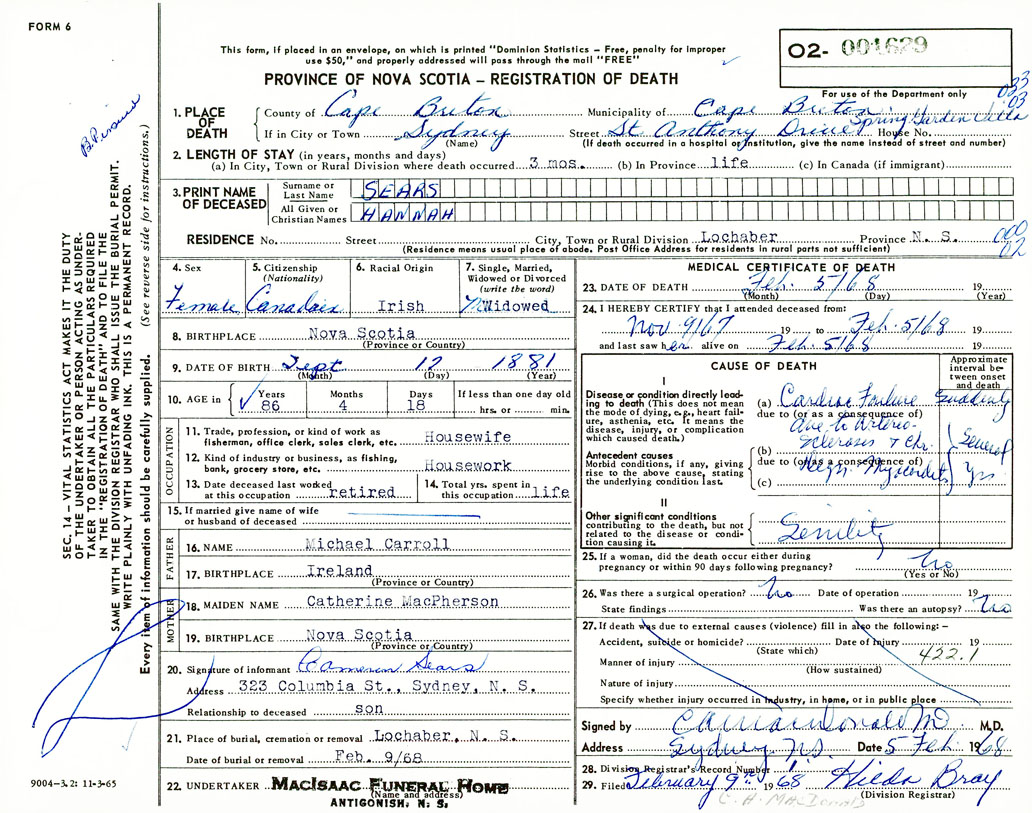 FORM 6
This form, if placed in an envelope, on which is printed "Dominion Statistics – Free, penalty for improper
use $50," and properly addressed will pass through the mail "FREE"
O2- 001629
For use of the Department only
PROVINCE OF NOVA SCOTIA – REGISTRATION OF DEATH
033
03
1. PLACE OF DEATH
County of Cape Breton Municipality of Cape Breton
Spring Garden Villa
If in City or Town Sydney Street St Anthony Drive House No.
(Name) (If death occurred in a hospital or institution, give the name instead of street and number)
2. LENGTH OF STAY (in years, months and days)
(a) In City, Town or Rural Division where death occurred 3 mos. (b) In Province life (c) In Canada (if immigrant)
3. PRINT NAME OF DECEASED
Surname or Last Name SEARS
All Given or Christian Names HANNAH
000
02
RESIDENCE No. Street City, Town or Rural Division Lochaber Province N. S.
(Residence means usual place of abode. Post Office Address for residents in rural parts not sufficient)
4. Sex Female
5. Citizenship (Nationality) Canadian
6. Racial Origin Irish
7. Single, Married, Widowed or Divorced (write the word) Widowed
8. BIRTHPLACE Nova Scotia
(Province or Country)
9. DATE OF BIRTH Sept 12 1881
(Month) (Day) (Year)
10. AGE in Years 86 Months 4 Days 18 If less than one day old hrs. or min.
OCCUPATION
11. Trade, profession, or kind of work as
fisherman, office clerk, sales clerk, etc. Housewife
12. Kind of industry or business, as fishing,
bank, grocery store, etc. Housework
13. Date deceased last worked
at this occupation retired
14. Total yrs. spent in
this occupation life
15. If married give name of wife
or husband of deceased
FATHER
16. NAME Michael Carroll
17. BIRTHPLACE Ireland
(Province or Country)
MOTHER
18. MAIDEN NAME Catherine MacPherson
19. BIRTHPLACE Nova Scotia
(Province or Country)
20. Signature of informant Cameron Sears
Address 323 Columbia St., Sydney, N. S.
Relationship to deceased son
21. Place of burial, cremation or removal Lochaber, N. S.
Date of burial or removal Feb. 9/68
22. UNDERTAKER MACISAAC FUNERAL HOME
(Name and address)
ANTIGONISH, N. S.
MEDICAL CERTIFICATE OF DEATH
23. DATE OF DEATH Feb. 5/68 19
(Month) (Day) (Year)
24. I HEREBY CERTIFY that I attended deceased from:
Nov 9/67 19 to Feb. 5/68 19
and last saw her alive on Feb. 5/68 19
CAUSE OF DEATH
Approximate interval between onset and death
I
Disease or condition directly leading to death (This does not mean
the mode of dying, e.g., heart failure, asthenia, etc. It means the
disease, injury, or complication
which caused death.)
(a) Cardiac Failure Suddenly
due to (or as a consequence of)
due to Arterio-
sclerosis & Chr.
Antecedent causes
Morbid conditions, if any, giving
rise to the above cause, stating
the underlying condition last.
(b) Several
due to (or as a consequence of)
Degen. Myocarditis Yrs
(c)
II
Other significant conditions
contributing to the death, but not
related to the disease or condition causing it.
Senility
25. If a woman, did the death occur either during
pregnancy or within 90 days following pregnancy? No
(Yes or No)
26. Was there a surgical operation? No Date of operation 19
State findings Was there an autopsy? No
27. If death was due to external causes (violence) fill in also the following: –
Accident, suicide or homicide? Date of Injury 19
(State which)
422.1
Manner of injury
(How sustained)
Nature of injury
Specify whether injury occurred in industry, in home, or in public place
Signed by M.D.
Address Sydney NS. Date 5 Feb. 1968
28. Division Registrar's Record Number
29. Filed February 9th 1968 Hilda Bray
(Division Registrar)
C. H. MacDonald
SEC. 14 – VITAL STATISTICS ACT MAKES IT THE DUTY
OF THE UNDERTAKER OR PERSON ACTING AS UNDER-
TAKER TO OBTAIN ALL THE PARTICULARS REQUIRED
IN THE "REGISTRATION OF DEATH" AND TO FILE THE
SAME WITH THE DIVISION REGISTRAR WHO SHALL ISSUE THE BURIAL PERMIT.
WRITE PLAINLY WITH UNFADING INK. THIS IS A PERMANENT RECORD.
Every item of information should be carefully supplied. (See reverse side for instructions.)
9004–3.2: 11-3-65